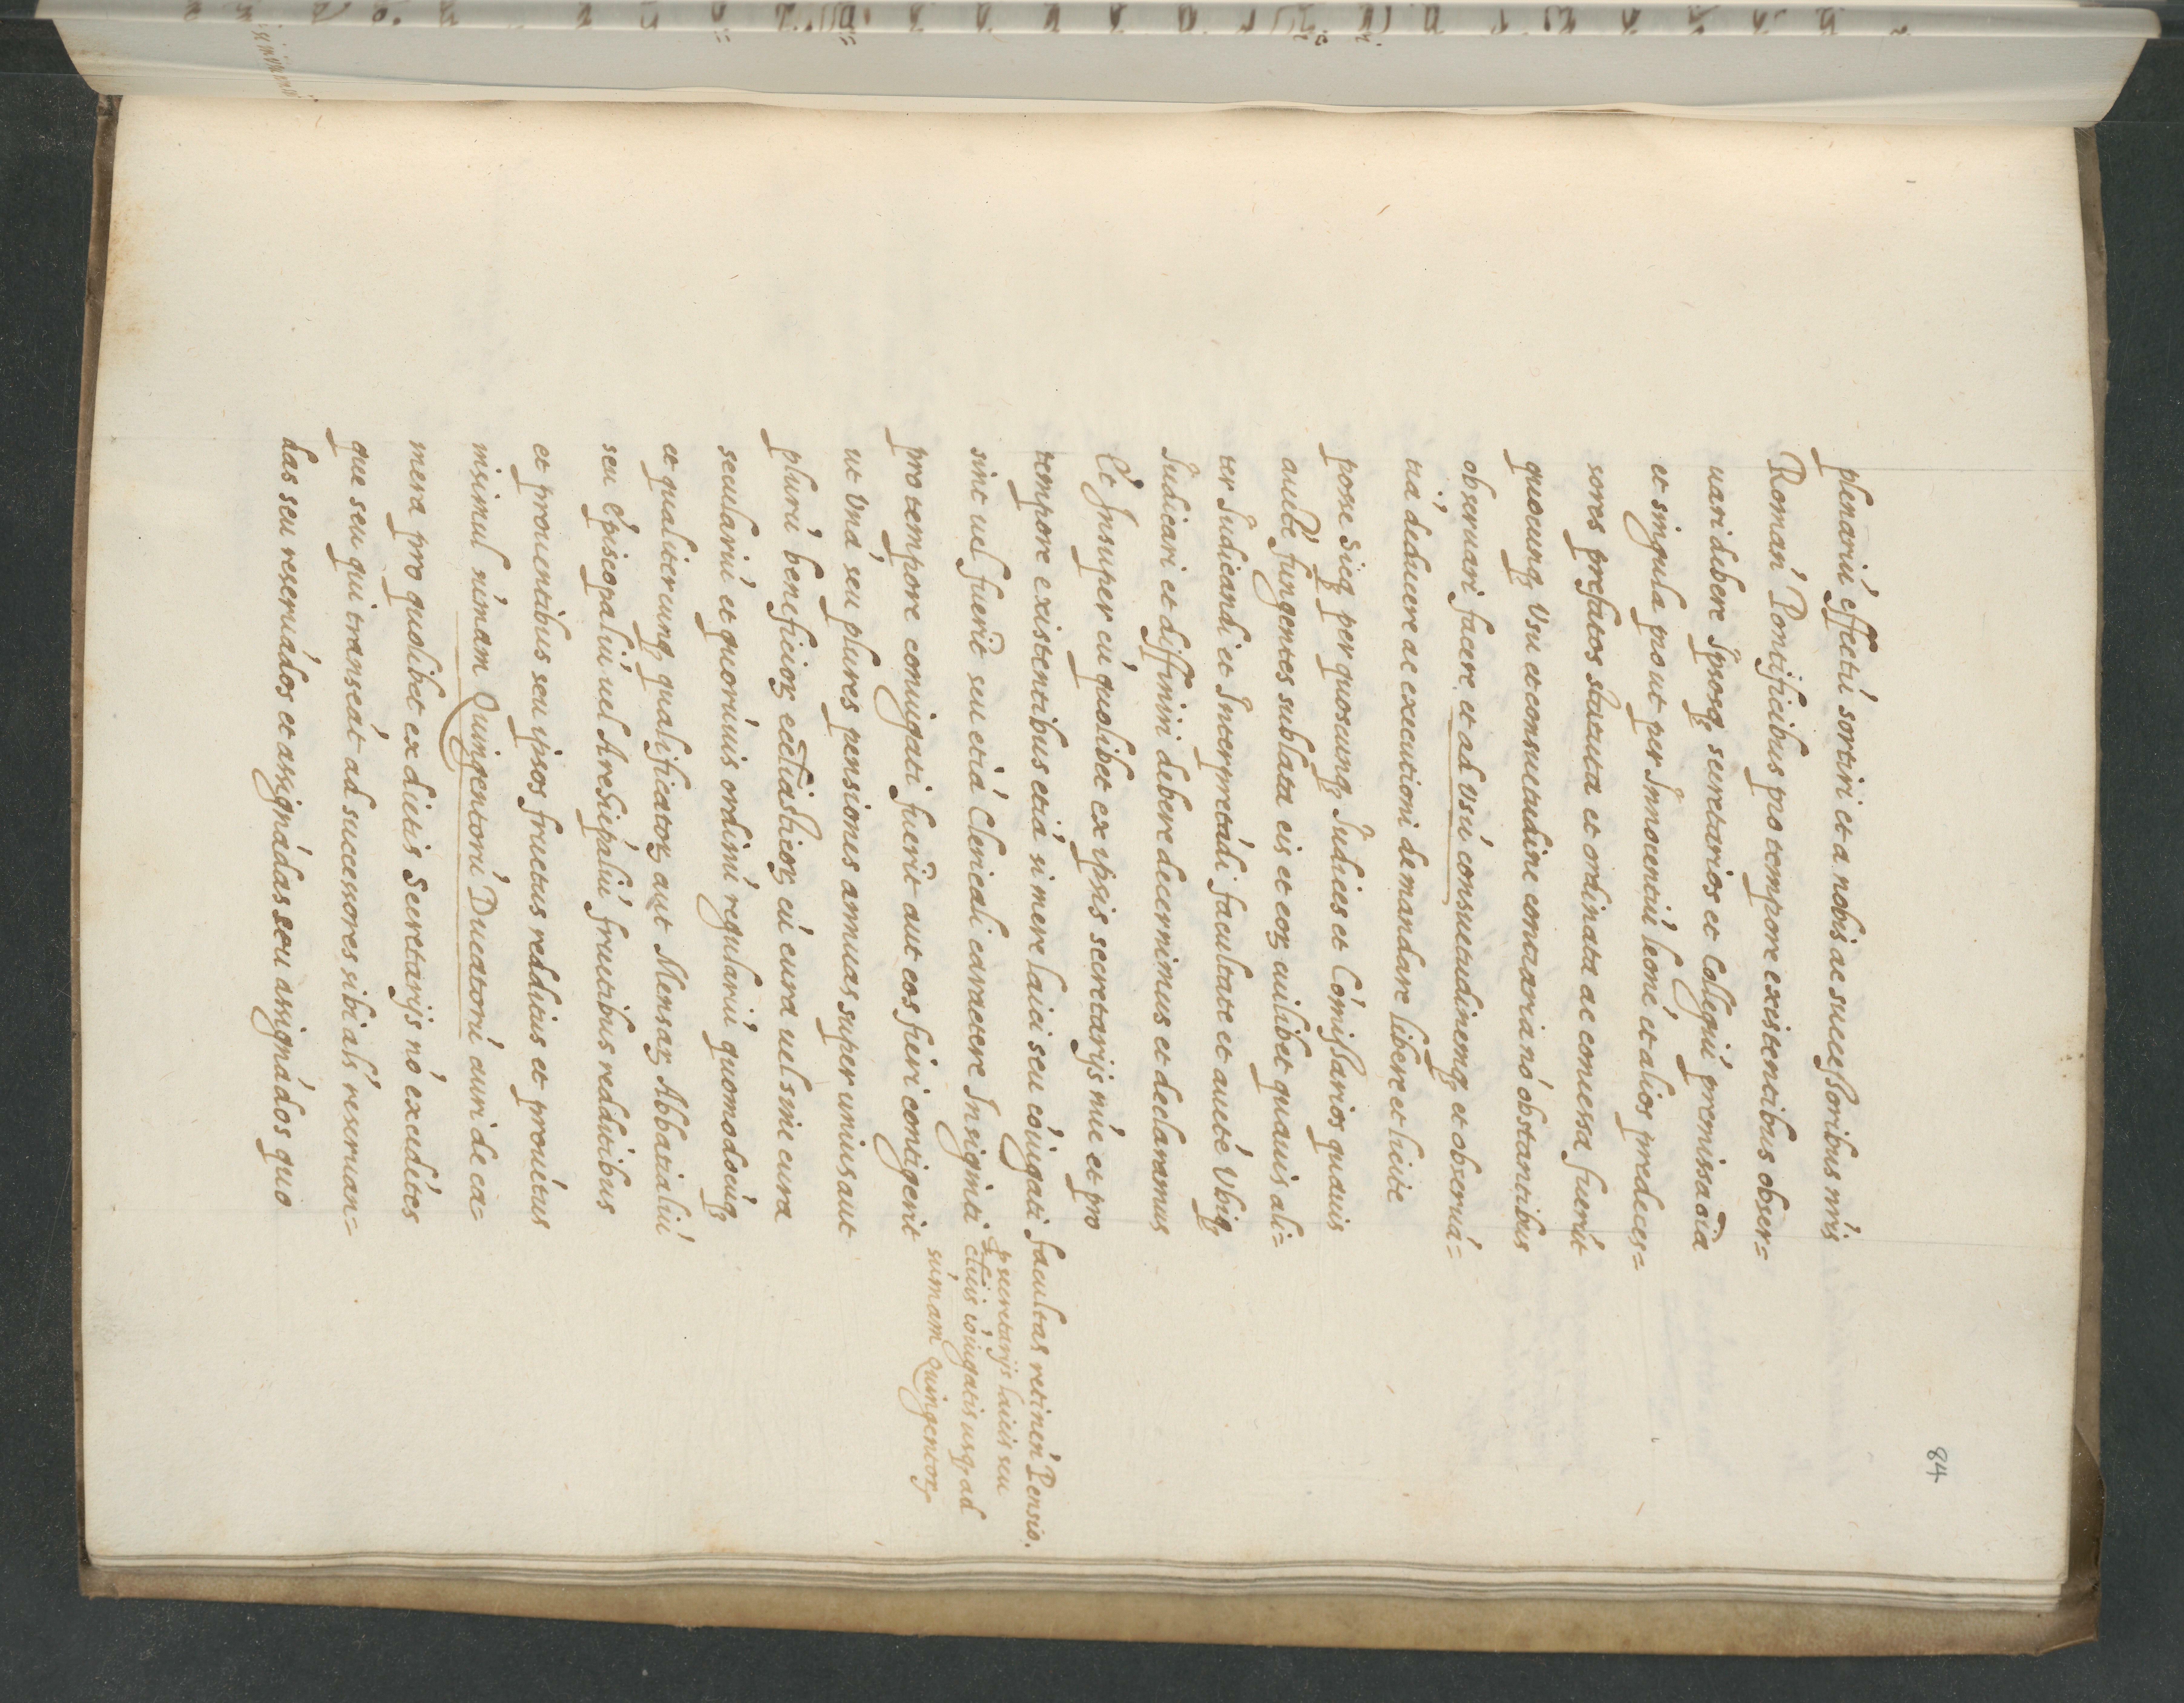 84
plenariú effectú sortiri et a nobis ac successoribus nr̃is
Román Pontificibus pro tempore existentibus obser=
uari debere Ipsosq; secretarios et Collegiú premissa oĩa
et singula pro ut per Innocentiú leoné et alios predeces=
sores prefatos statuta et ordinata ac concessa fuerút
quocunq; Vsu et consuetudine contraria nó obstantibus
obseruari facere et ad vsú consuetudinemq; et obseruá=
tiá deducere ac executioni demandare libere et licite
posse Sicq; per quoscunq; Iudices et Cómissarios quáuis
auc̃te fungentes sublata eis et eoꝝ cuilibet quauis ali=
ter Iudicandi et Interpretádi facultate et aucté Vbiq;
Iudicari et diffiniri debere decernimus et declaramus
Et Insuper cú quolibet ex ipsis secretarijs núc et pro
tempore existentibus etiá si mere laici seu cóiugati
sint uel fuerit̃ seu etiá Clericali caractere Insigniti
pro tempore coniugati fuerit̃ aut eos fieri contigerit
ut Vná seu plures pensiones annuas super unius aut
plurú beneficioꝝ ecclĩasticoꝝ cú cura uel sine cura
seculariú et quorúuis ordinú regulariú quomodocúq;
et qualitercunq; qualificatoꝝ aut Mensaꝝ Abbatialiú
seu Episcopaliú uel Archiepaliú fructibus redditibus
et prouentibus seu ipsos fructus redditus et prouétus
insimul súmam Quingentorú Ducatorú auri de ca=
mera pro quolibet ex dictis Secretarijs nó excedétes
que seu qui transeát ad successores sibi al's reseruan=
das seu reseruádos et assignádas seu assignádos quo
facultas retinén Pensio.
p secretarijs laicis seu
cl'icis cóiugatis usq; ad
súmam Quingentoꝝ